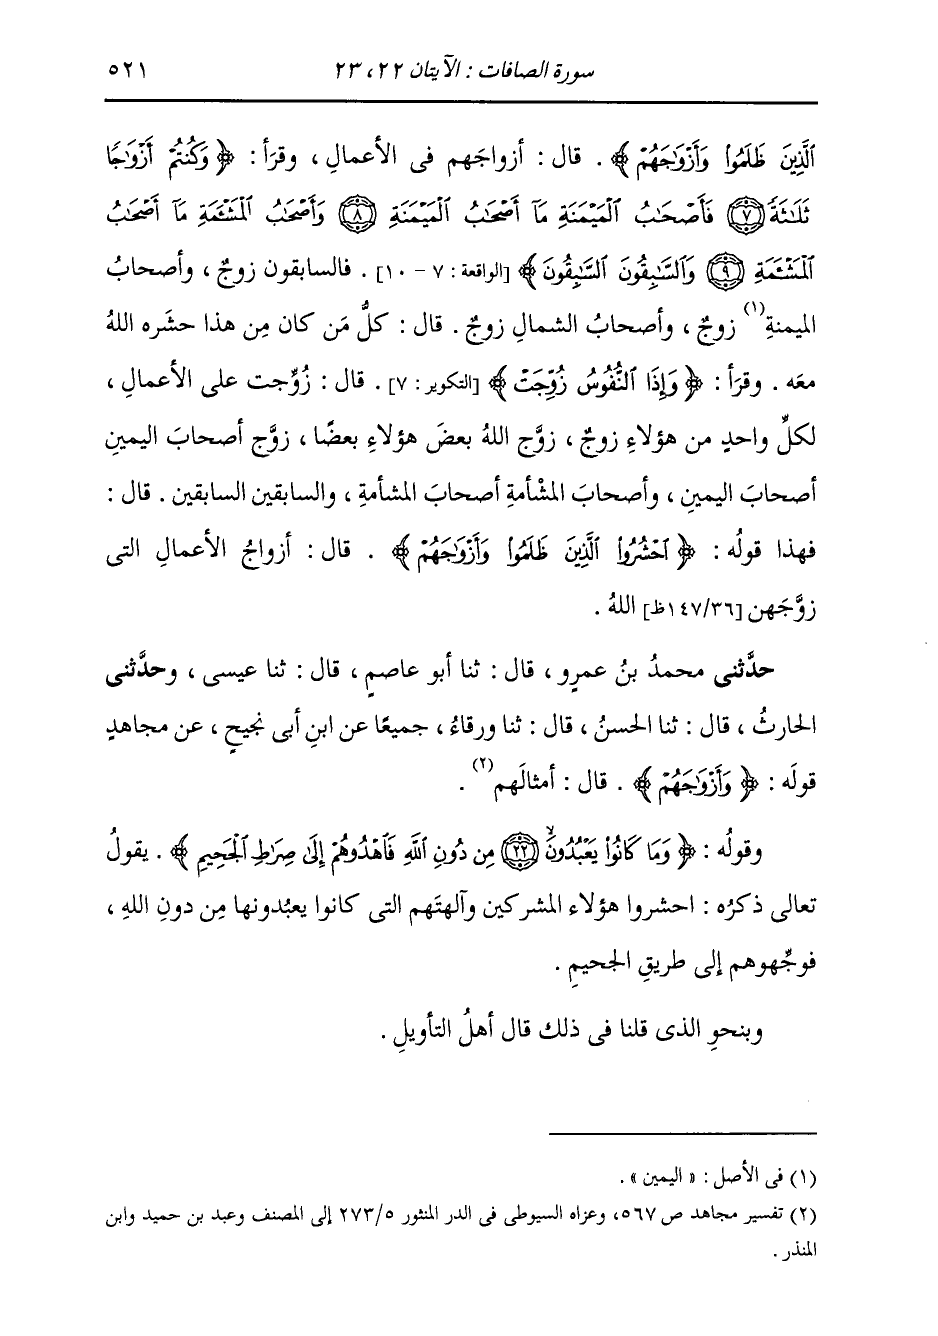 سورة الصافات : الآيتان ٢٢، ٢٣ ٥٢١
ٱلَّذِينَ ظَلَمُوا۟ وَأَزْوَٰجَهُمْ ﴾ . قال : أزواجَهم فى الأعمالِ ، وقرَأ : ﴿ وَكُنتُمْ أَزْوَٰجًا
ثَلَـٰثَةً ﴿٧﴾ فَأَصْحَـٰبُ ٱلْمَيْمَنَةِ مَآ أَصْحَـٰبُ ٱلْمَيْمَنَةِ ﴿٨﴾ وَأَصْحَـٰبُ ٱلْمَشْـَٔمَةِ مَآ أَصْحَـٰبُ
ٱلْمَشْـَٔمَةِ ﴿٩﴾ وَٱلسَّـٰبِقُونَ ٱلسَّـٰبِقُونَ ﴾ [الواقعة : ٧ - ١٠] . فالسابقون زوجٌ ، وأصحابُ
الميمنةِ(١) زوجٌ ، وأصحابُ الشمالِ زوجٌ . قال : كلُّ مَن كان مِن هذا حشَره اللهُ
معَه . وقرَأ : ﴿ وَإِذَا ٱلنُّفُوسُ زُوِّجَتْ ﴾ [التكوير : ٧] . قال : زُوِّجت على الأعمالِ ،
لكلِّ واحدٍ من هؤلاءِ زوجٌ ، زوَّج اللهُ بعضَ هؤلاءِ بعضًا ، زوَّج أصحابَ اليمينِ
أصحابَ اليمينِ ، وأصحابَ المشْأمةِ أصحابَ المشأمةِ ، والسابقين السابقين . قال :
فهذا قولُه : ﴿ ٱحْشُرُوا۟ ٱلَّذِينَ ظَلَمُوا۟ وَأَزْوَٰجَهُمْ ﴾ . قال : أزواجُ الأعمالِ التى
زوَّجَهن [١٤٧/٣٦ظ] اللهُ .
حدَّثنى محمدُ بنُ عمرٍو ، قال : ثنا أبو عاصمٍ ، قال : ثنا عيسى ، وحدَّثنى
الحارثُ ، قال : ثنا الحسنُ ، قال : ثنا ورقاءُ ، جميعًا عن ابنِ أبى نجيحٍ ، عن مجاهدٍ
قولَه : ﴿ وَأَزْوَٰجَهُمْ ﴾ . قال : أمثالَهم(٢) .
وقولُه : ﴿ وَمَا كَانُوا۟ يَعْبُدُونَۙ ﴿٢٢﴾ مِن دُونِ ٱللَّهِ فَٱهْدُوهُمْ إِلَىٰ صِرَٰطِ ٱلْجَحِيمِ ﴾ . يقولُ
تعالى ذكرُه : احشروا هؤلاء المشركين وآلهتَهم التى كانوا يعبُدونها مِن دونِ اللهِ ،
فوجِّهوهم إلى طريقِ الجحيمِ .
وبنحوِ الذى قلنا فى ذلك قال أهلُ التأويلِ .
(١) فى الأصل : « اليمين » .
(٢) تفسير مجاهد ص ٥٦٧، وعزاه السيوطى فى الدر المنثور ٢٧٣/٥ إلى المصنف وعبد بن حميد وابن
المنذر .